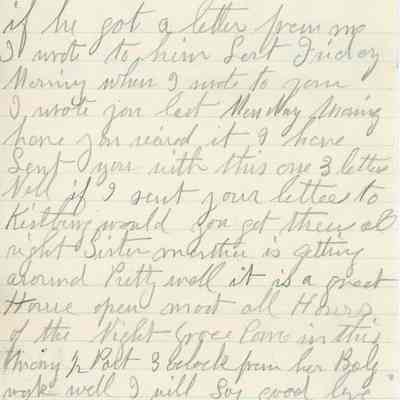 if he got a letter from me
I wrote to him Last Friday
Morning when I wrote to you
I wrote you last Monday Morning
have you reived it I have
Sent you with this one 3 letters
Well if I sent your letters to
would you get them al
right Sister martha is getting
around Pretty well it is a great
House open most all Hours
of the Night Grace Came in this
Morning ½ Past 3 oclock from her Boly
work well I will Say good bye